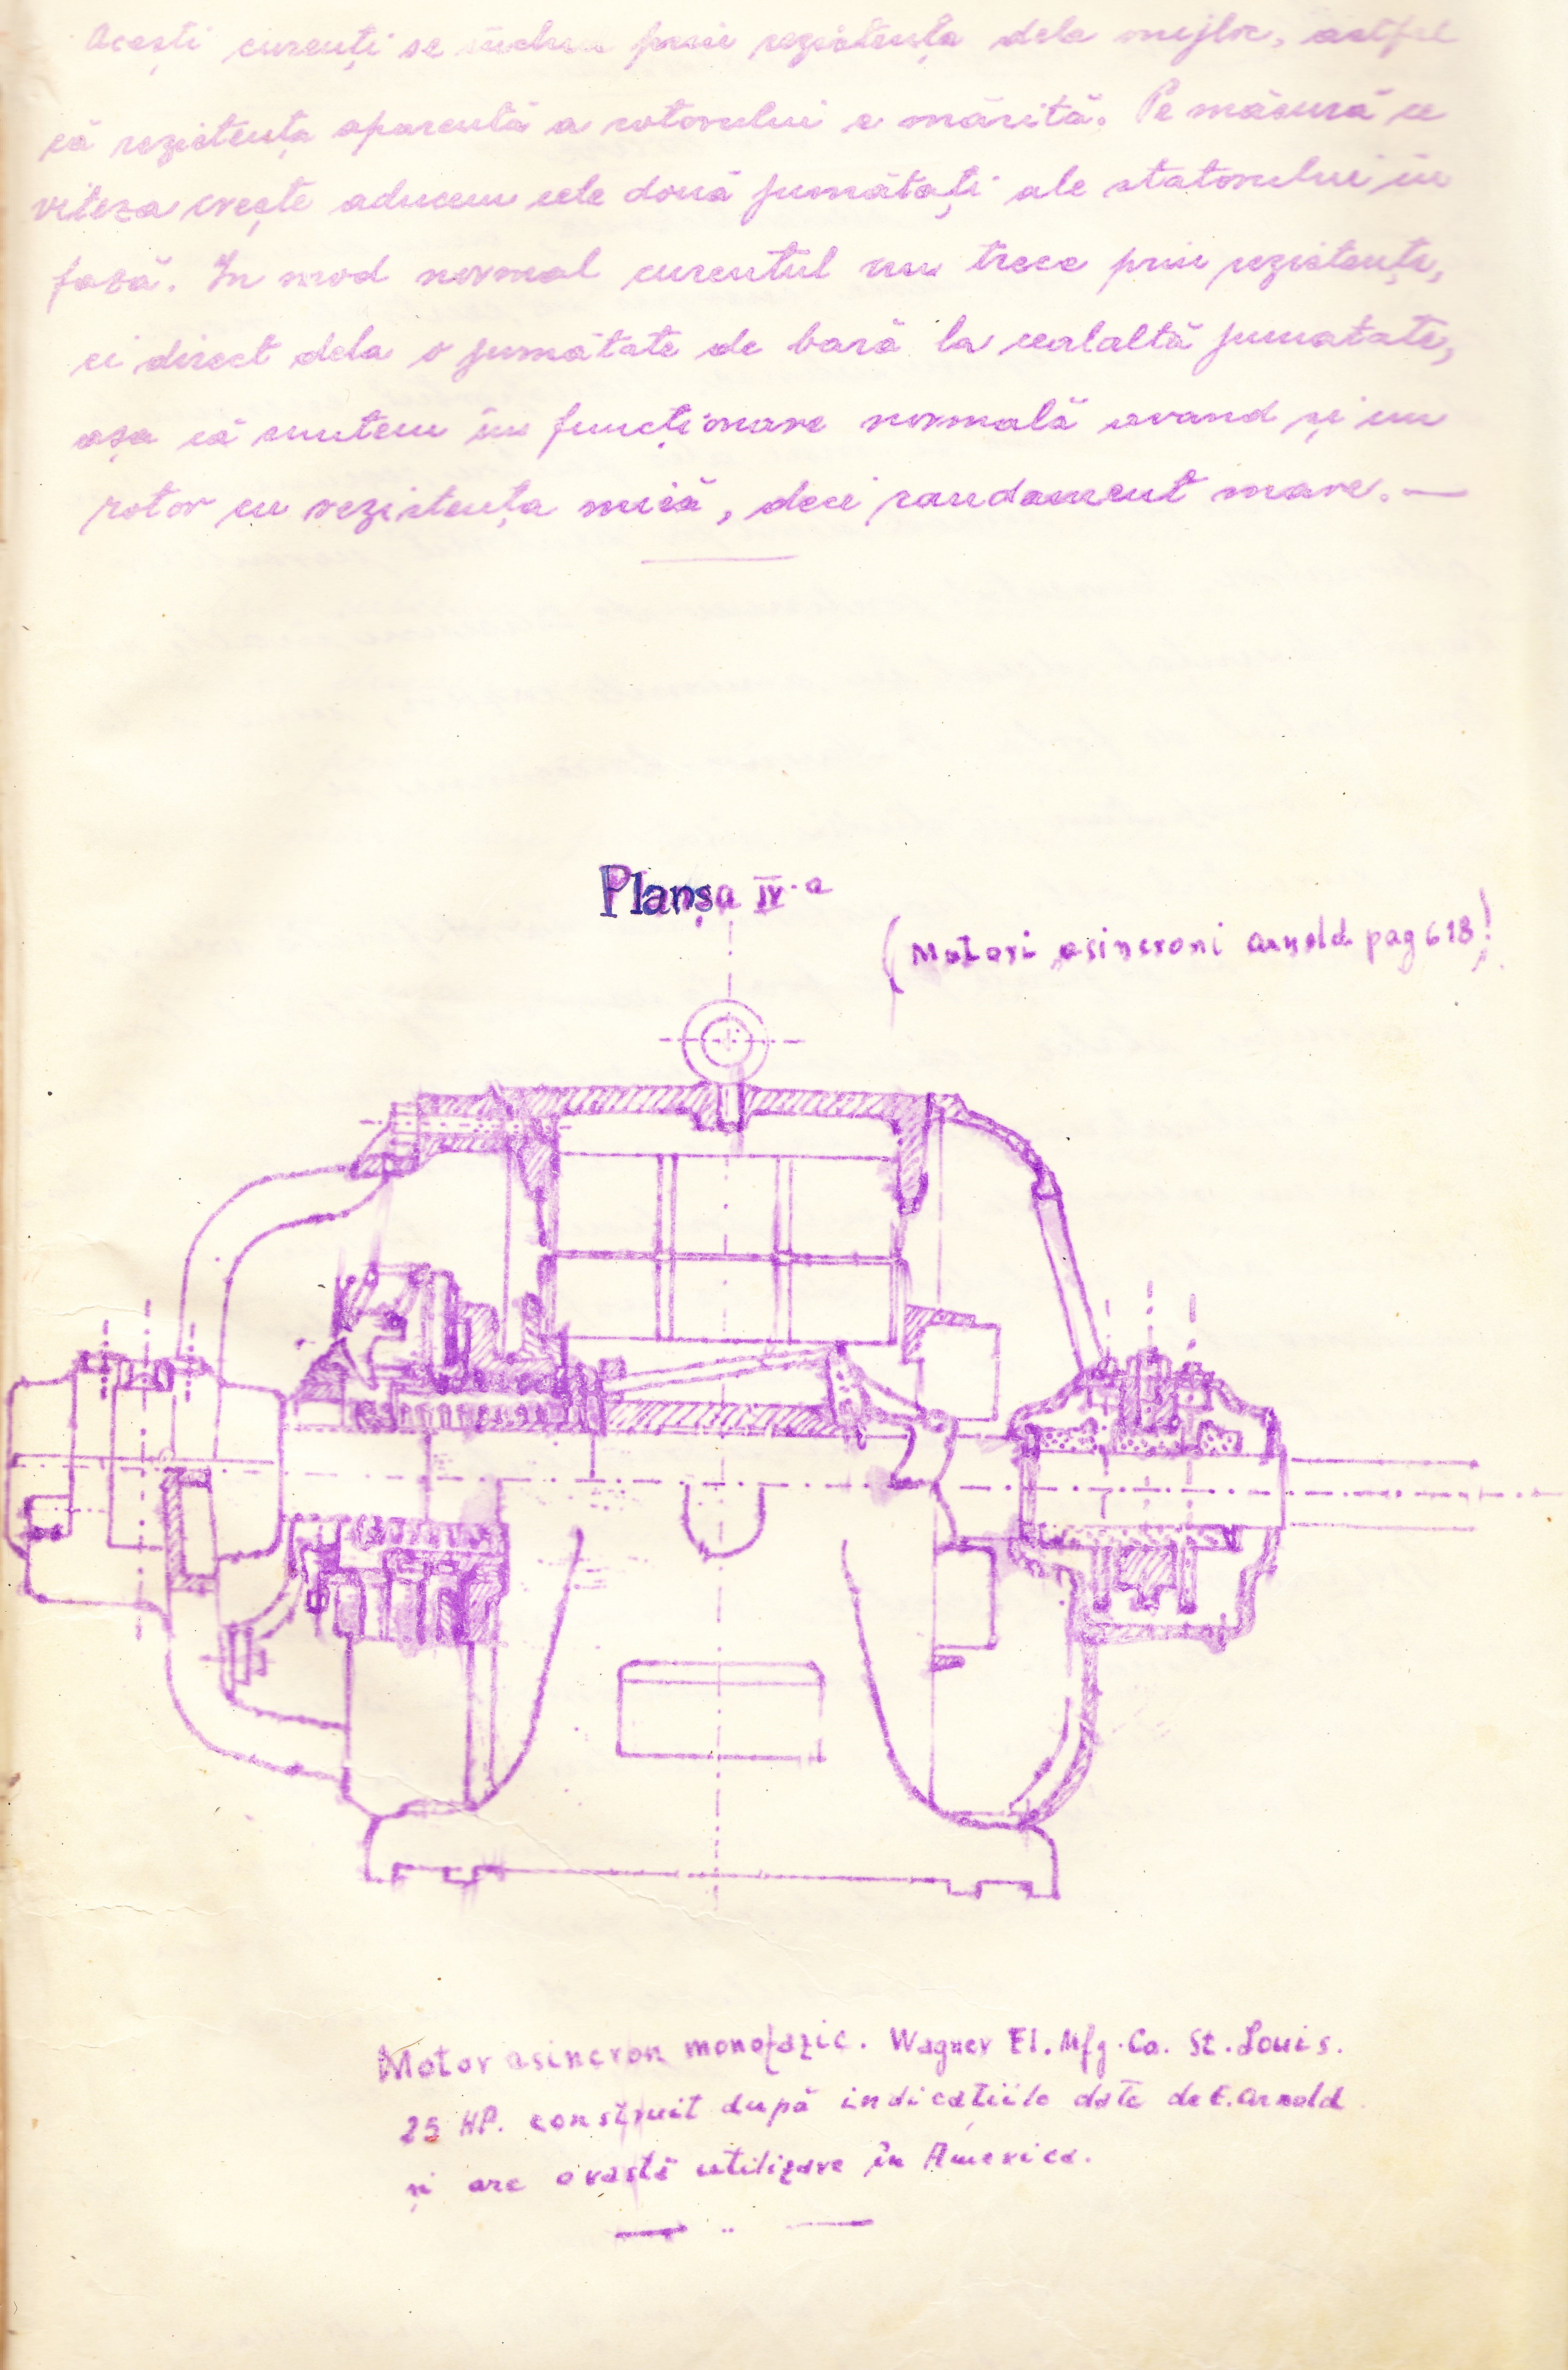 Acești curenți se închid prin rezistența dela mijloc, astfel
că rezistența aparentă a rotorului e mărită. Pe măsură ce
viteza crește aducem cele două jumătăți ale statorului în
fază. In mod normal curentul nu trece prin rezistențe,
ci direct dela o jumătate de bară la cealaltă jumatate,
așa că suntem în funcționare normală avand și un
rotor cu rezistența mică, deci randament mare. —
Planșa IV-a
(Motori asincroni Arnold pag 618)
Motor asincron monofazic. Wagner El. Mfg. Co. St. Louis.
25 HP. construit după indicatiile date de E. Arnold
și are o vastă utilizare în America.